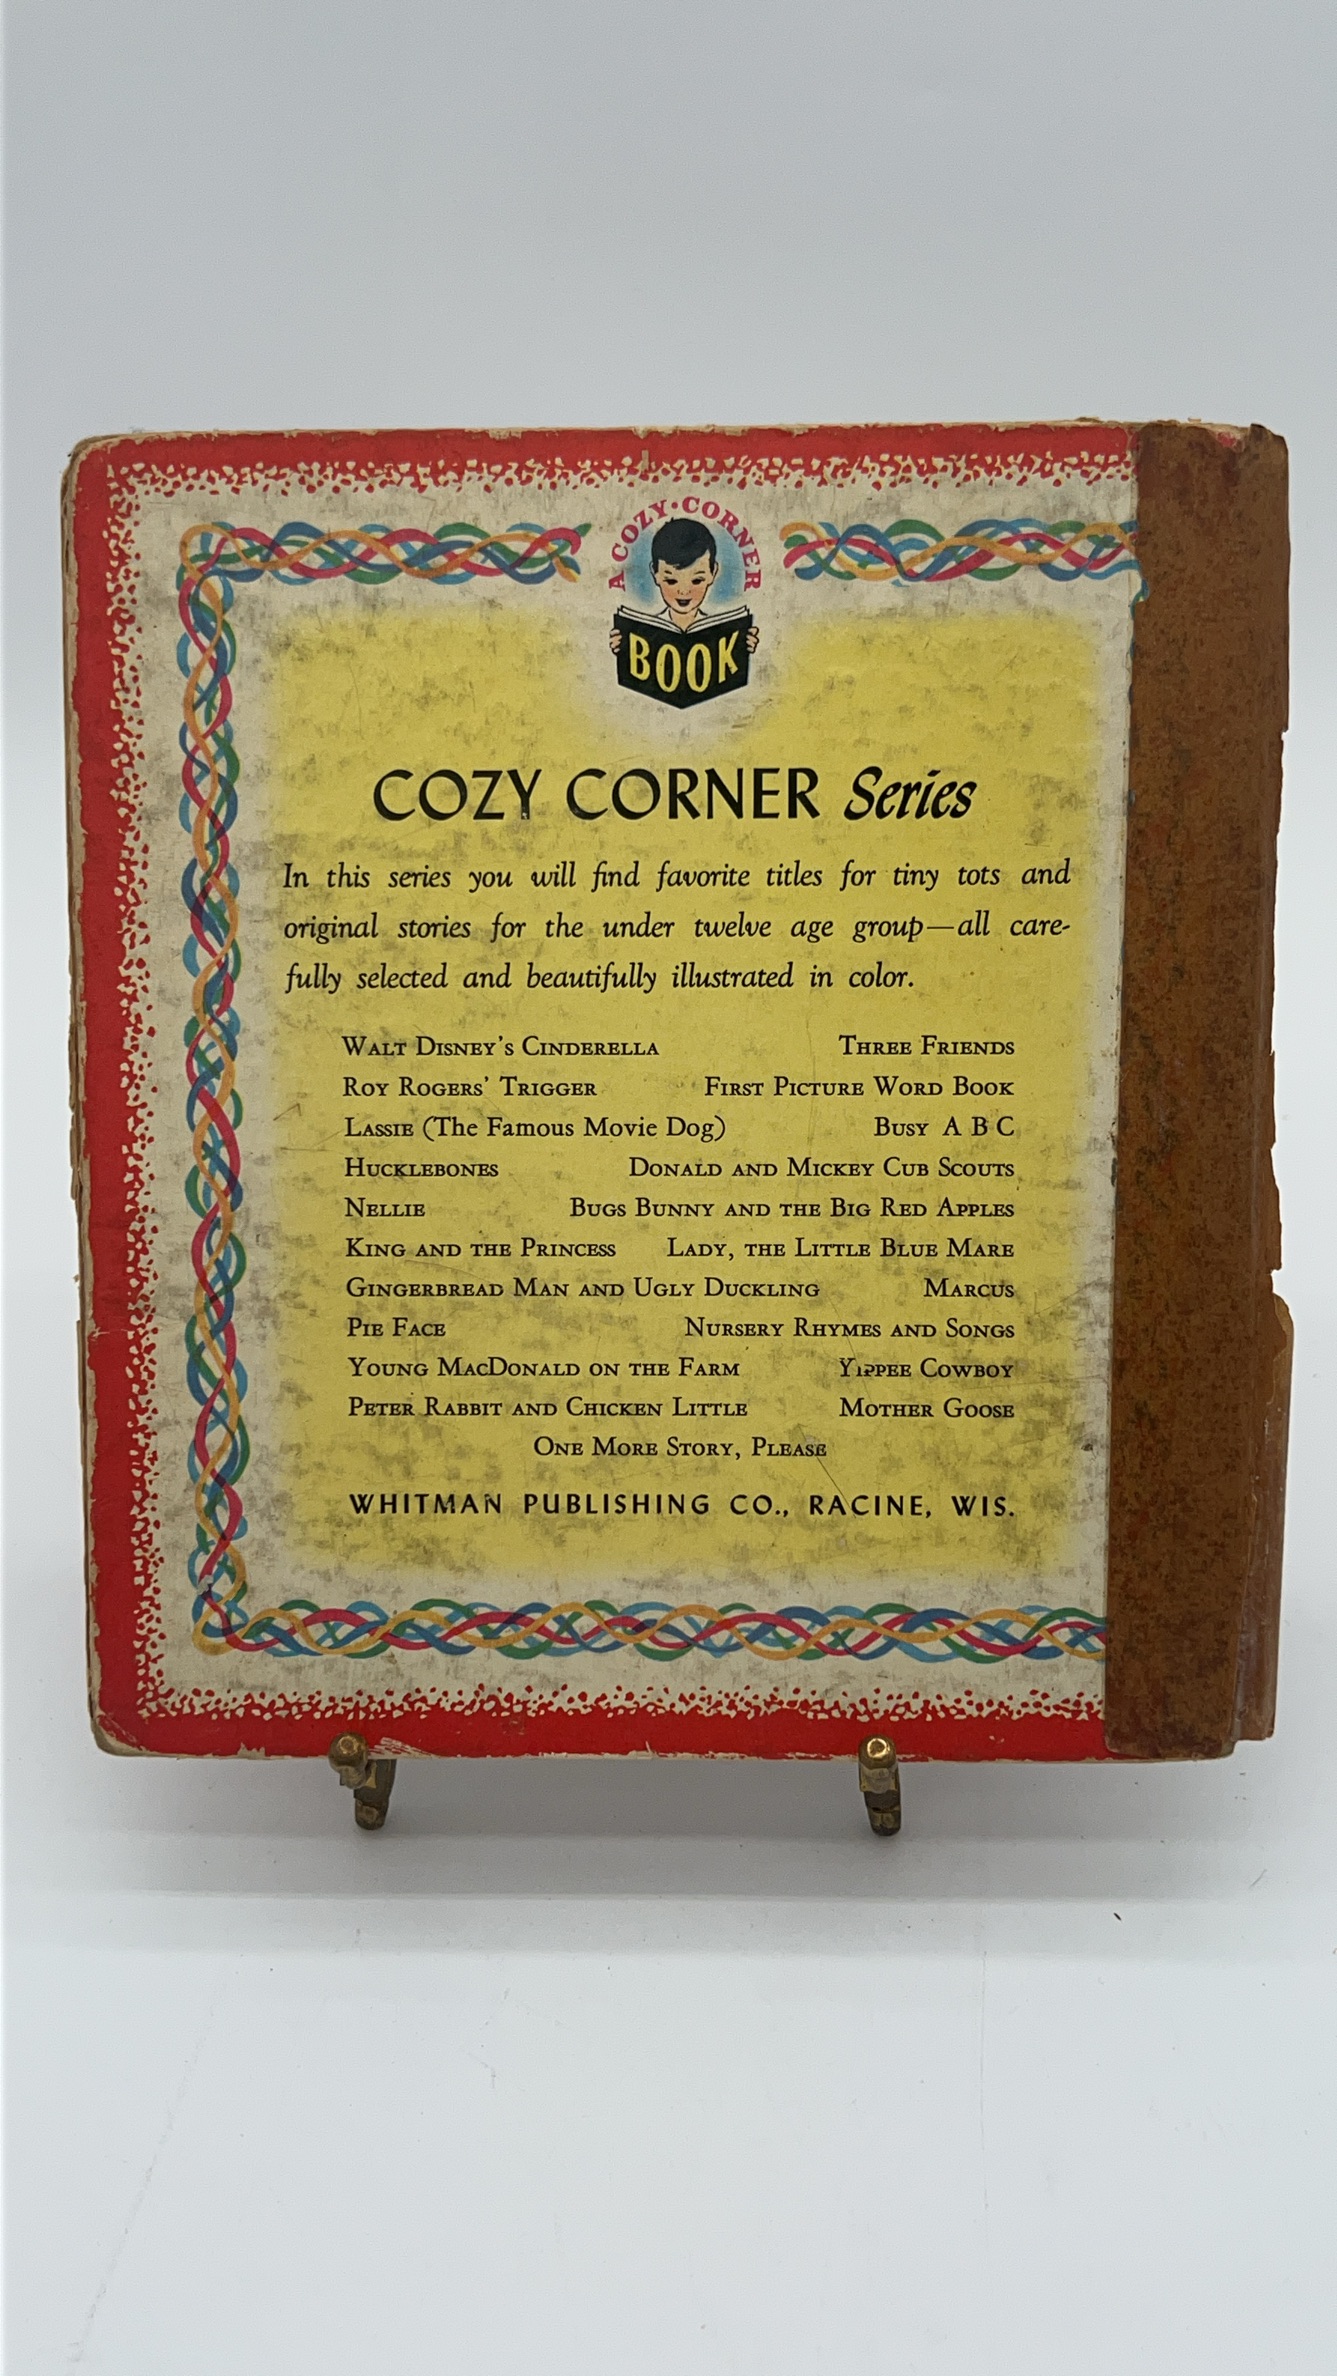 A COZY·CORNER
BOOK
COZY CORNER Series
In this series you will find favorite titles for tiny tots and
original stories for the under twelve age group—all care-
fully selected and beautifully illustrated in color.
WALT DISNEY'S CINDERELLA THREE FRIENDS
ROY ROGERS' TRIGGER FIRST PICTURE WORD BOOK
LASSIE (The Famous Movie Dog) BUSY A B C
HUCKLEBONES DONALD AND MICKEY CUB SCOUTS
NELLIE BUGS BUNNY AND THE BIG RED APPLES
KING AND THE PRINCESS LADY, THE LITTLE BLUE MARE
GINGERBREAD MAN AND UGLY DUCKLING MARCUS
PIE FACE NURSERY RHYMES AND SONGS
YOUNG MACDONALD ON THE FARM YIPPEE COWBOY
PETER RABBIT AND CHICKEN LITTLE MOTHER GOOSE
ONE MORE STORY, PLEASE
WHITMAN PUBLISHING CO., RACINE, WIS.